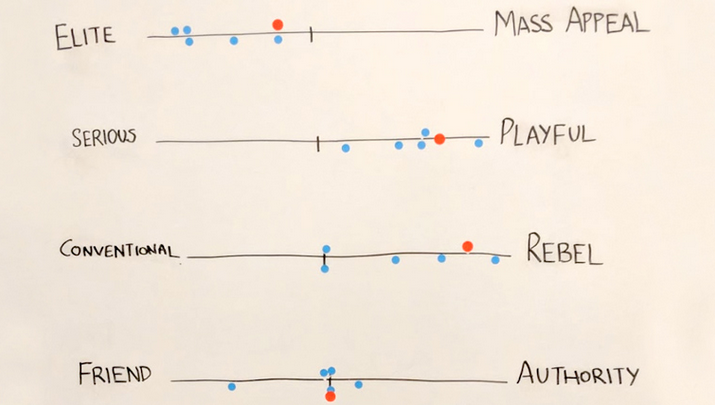 ELITE MASS APPEAL
SERIOUS PLAYFUL
CONVENTIONAL REBEL
FRIEND AUTHORITY